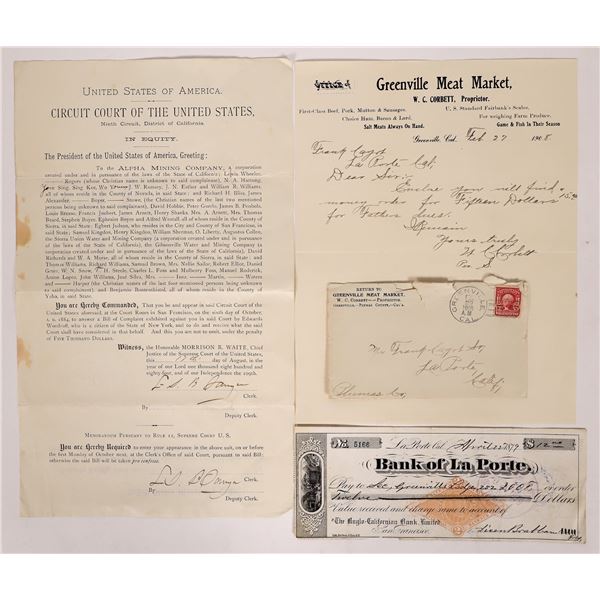 UNITED STATES OF AMERICA.
CIRCUIT COURT OF THE UNITED STATES,
Ninth Circuit, District of California.
IN EQUITY.
The President of the United States of America, Greeting:
To the ALPHA MINING COMPANY, a corporation
created under and in pursuance of the laws of the State of California; Lewis Wheeler,
Rogers (whose Christian name is unknown to said complainant), N. A. Hartung,
Sing Sing Kee, Wo J. W. Rumsey, J. N. Esther and William R. Williams,
all of whom reside in the County of Nevada, in said State; and Richard H. Bliss, James
Alexander, Boyer, Stowe, (the Christian names of the last two mentioned
persons being unknown to said complainant), David Hobbie, Peter Goetz, James R. Penhals,
Louis Breens, Francis Joubert, James Arnett, Henry Shanks, Mrs. A. Arnett, Mrs. Thomas
Beard, Stephen Boyer, Ephraim Boyer and Alfred Wood, all of whom reside in the County of
Sierra, in said State; Egbert Judson, who resides in the City and County of San Francisco, in said
State, Samuel Kingdon, Henry Kingdon, William Sherman, O. Liberty, Augustus Collen,
the Sierra Union Water and Mining Company (a corporation created under and in pursuance of
the laws of the State of California), the Gibsonville Water and Mining Company (a
corporation created under and in pursuance of the laws of the State of California), David
Richards and Thomas Morris, all of whom reside in the County of Sierra, in said State; and
Thomas Williams, Richard Williams, Samuel Brown, Mrs. Nellie Sadler, Robert Elliot, Daniel
Gruer, W. N. Snow, T. H. Steele, Charles L. Foss and Mulleory Foss, Manuel Roderick,
Anton Logan, John Williams, José Silva, Mrs. Martin, Waters
and Harper (the Christian names of the last four mentioned persons being unknown to said
complainant), and Benjamin Bonneifield, all of whom reside in the County of
Yuba, in said State.
You are hereby Commanded, That you be and appear in said Circuit Court of the
United States aforesaid, at the Court Room in San Francisco, on the sixth day of October,
A. D. 1884, to answer a Bill of Complaint exhibited against you in said Court by Edwards
Woodruff, who is a citizen of the State of New York, and to do and receive what the said
Court shall have considered in that behalf. And this you are not to omit, under the penalty
of FIVE THOUSAND DOLLARS.
Witness, the Honorable MORRISON R. WAITE, Chief
Justice of the Supreme Court of the United States,
this day of August, in
the year of our Lord one thousand eight hundred and
eighty-four, and of our Independence the 109th.
Clerk.
By
Deputy Clerk.
MEMORANDUM PURSUANT TO RULE 12, SUPREME COURT U. S.
You are Hereby Required to enter your appearance in the above suit, on or before the
first Monday of October next, at the Clerk's Office of said Court, pursuant to said Bill;
otherwise the said Bill will be taken pro confesso.
Clerk.
By
Deputy Clerk.
Greenville Meat Market,
W. C. CORBETT, Proprietor.
First-Class Beef, Pork, Mutton & Sausages,
Choice Ham, Bacon & Lard.
Salt Meats Always On Hand.
U. S. Standard Fairbank's Scales,
For weighing Farm Produce.
Game & Fish In Their Season
Greenville, Cal. Feb 27 1908
Frank Cayot
La Porte Cal
Dear Sir:
Enclose you will find
money order for Fifteen Dollars 15.00
for Fathers dues.
I Remain
Yours truly
W. Corbett
RETURN TO
GREENVILLE MEAT MARKET,
W. C. CORBETT, PROPRIETOR.
GREENVILLE, PLUMAS COUNTY, CAL.
GREENVILLE
CAL.
Mr Frank Cayot
La Porte
Calif
Plumas Co
No. 5166
La Porte Cal. April 1879 $12.00
Bank of La Porte.
Pay to or order
Twelve Dollars
Value received and charge same to account of
To The Anglo-Californian Bank, Limited
San Francisco.